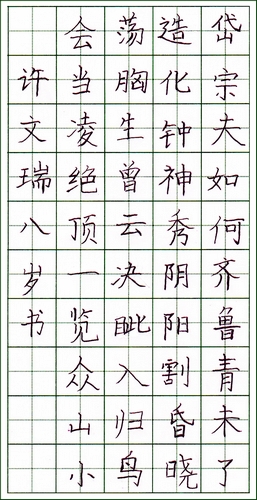 岱宗夫如何齐鲁青未了
造化钟神秀阴阳割昏晓
荡胸生曾云决眦入归鸟
会当凌绝顶一览众山小
许文瑞八岁书